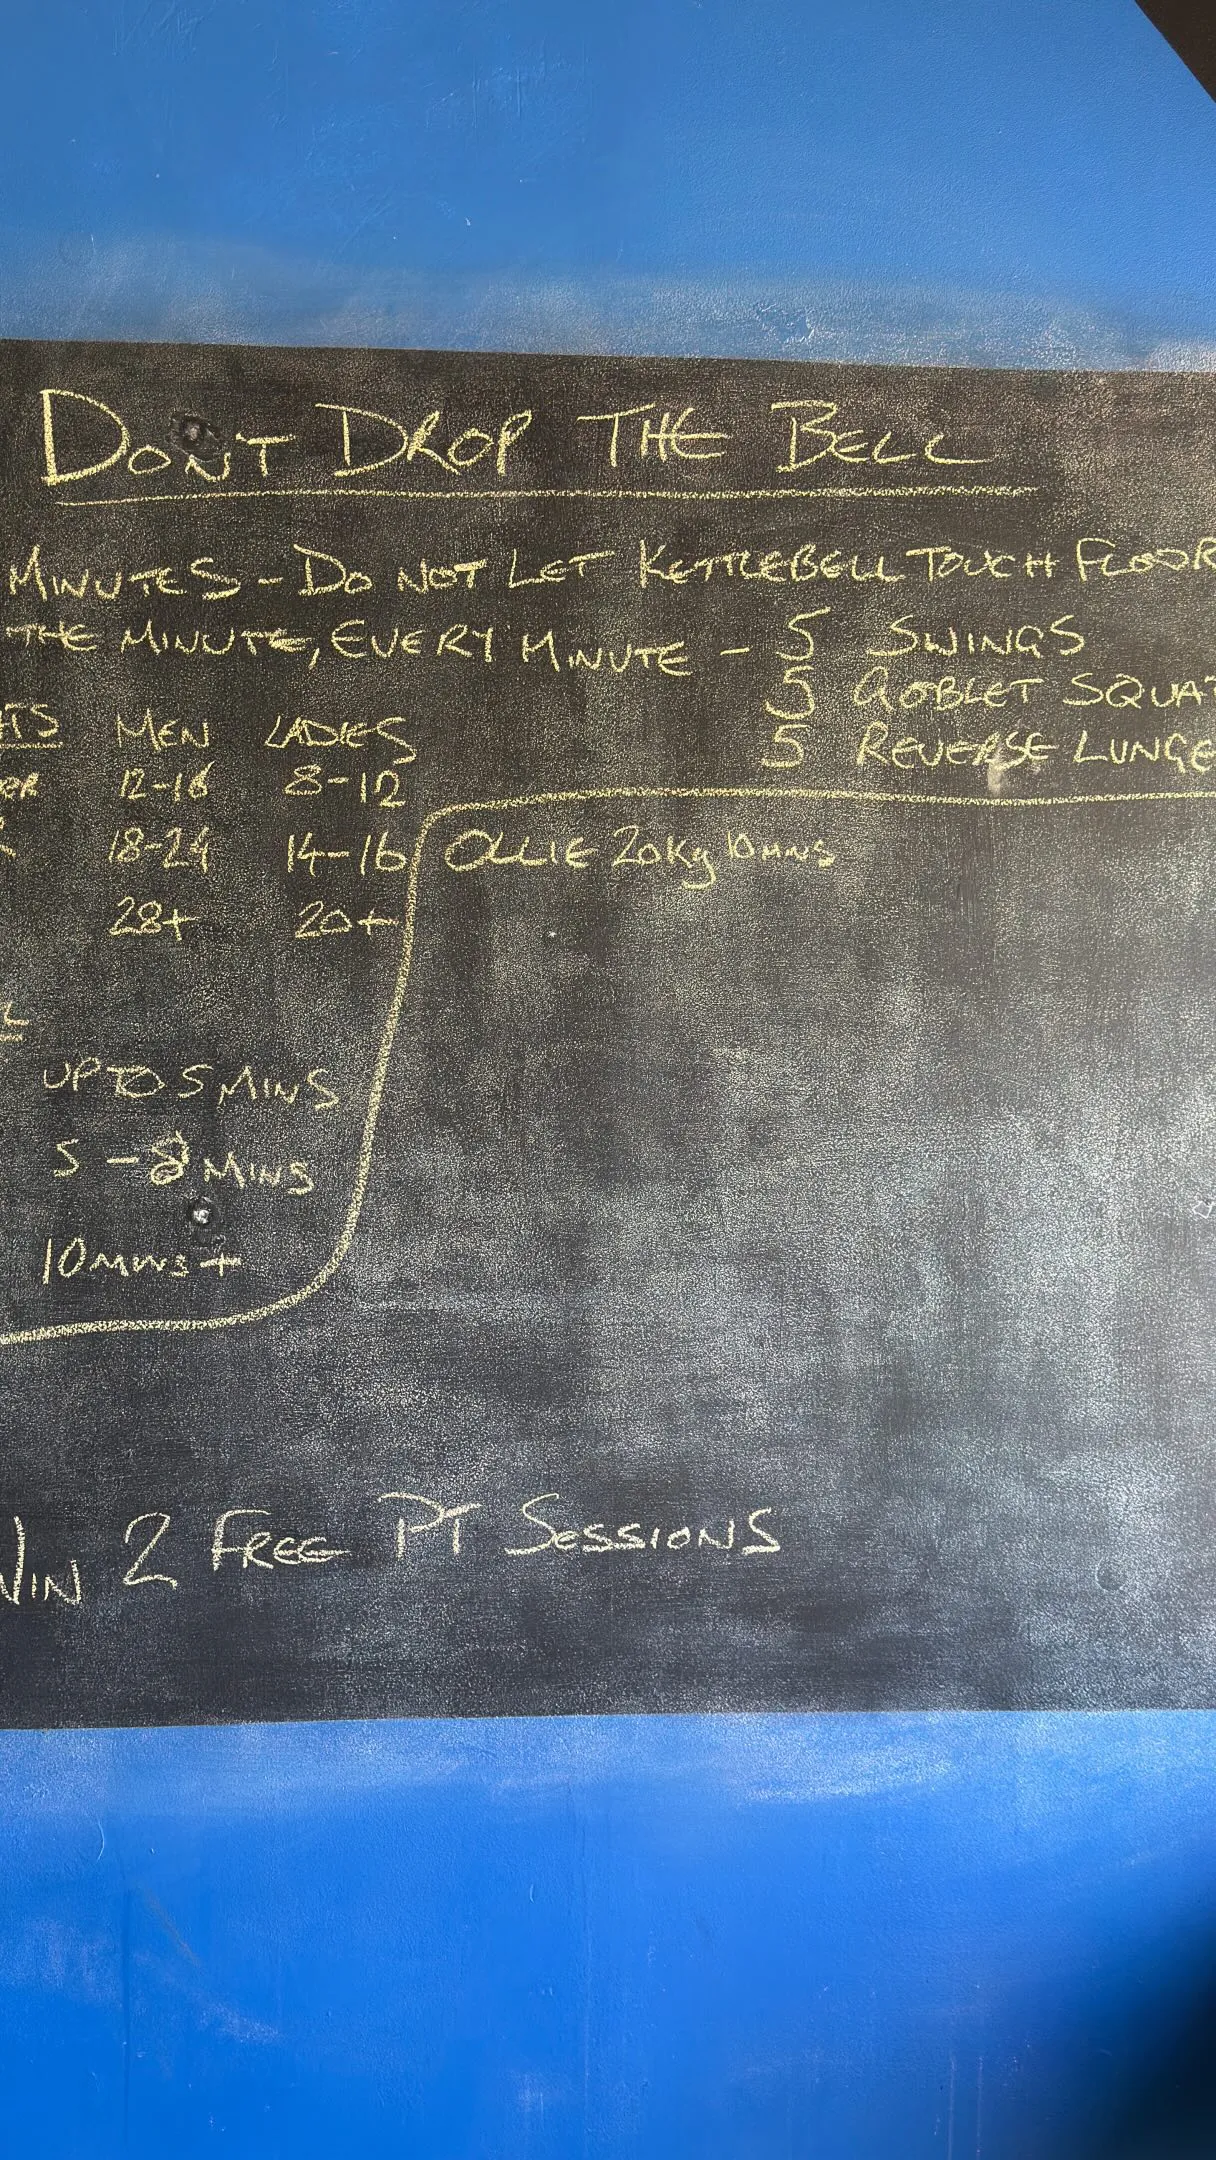 DON'T DROP THE BELL
MINUTES - DO NOT LET KETTLEBELL TOUCH FLOOR
THE MINUTE, EVERY MINUTE - 5 SWINGS
5 GOBLET SQUAT
5 REVERSE LUNGE
HTS MEN LADIES
OR 12-16 8-12
R 18-24 14-16
28+ 20+
OLLIE 20Kg 10MINS
L
UP TO 5 MINS
5 - 8 MINS
10MINS+
WIN 2 FREE PT SESSIONS